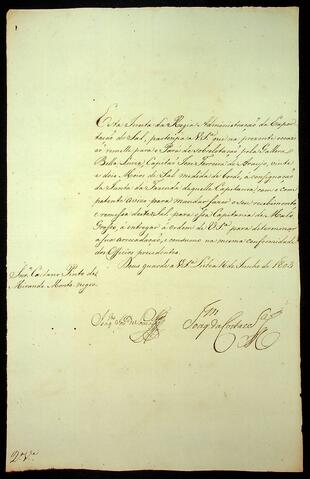 Esta Junta da Regia Administração da Expor-
tação do Sal, participa a V.S.ª que na prezente occazi-
ão remette para o Pará de sobrelotação pela Gallera
Bella Lucia, Capitão Joze Ferreira de Araujo, vinte
e dois Moios de Sal medida de bordo, á consignação
da Junta da Fazenda daquella Capitania, com o com-
petente avizo para mandar fazer o seu recebimento
e remessa deste Sal para essa Capitania de Mato
Grosso, a entregar á ordem de V.S.ª para determinar
a sua arrecadação, e consumo na mesma conformidade
dos Officios precedentes.
Deus guarde a V.S.ª Lisboa 16 de Junho de 1803
Caetano Pinto de
Miranda Monte negro
Joaq.m da Costa
2.ª Via